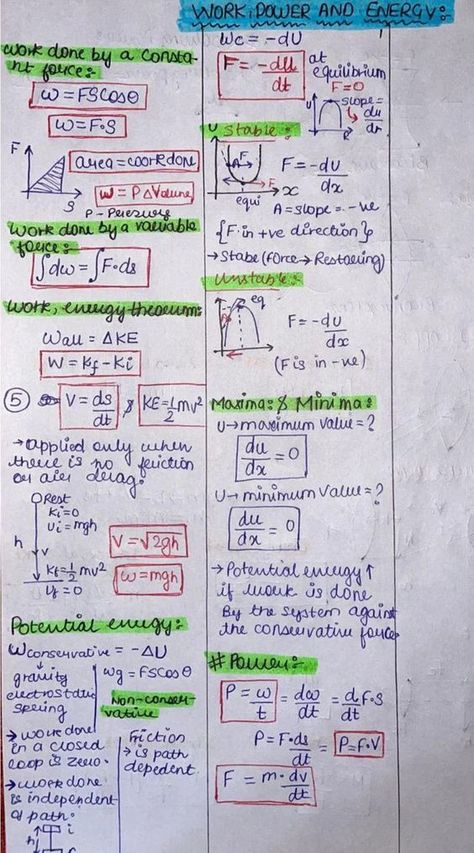 WORK, POWER AND ENERGY:
Work done by a consta-
nt force:-
W = FS cosθ
W = F·S
F
area = work done
S
W = PΔVolume
Work done by a variable
force:-
∫dw = ∫F·ds
Work, energy theorem:
Wall = ΔKE
W = Kf - Ki
⑤ V = ds/dt & KE = 1/2 mv²
→ applied only when
there is no friction
or air drag.
Rest
Ki = 0
Ui = mgh
h
v
V = √2gh
Kf = 1/2 mv²
Uf = 0
W = mgh
Potential energy:
Wconservative = -ΔU
gravity
electrostatic
spring
Wg = FS cosθ
Non-conser-
vative
→ work done
in a closed
loop is zero.
→ work done
is independent
of path.
i
h
Friction
→ is path
depedent
Wc = -dU
F = -dU/dt
at
equilibrium
F = 0
U
slope =
du/dr
R
U Stable:-
F
A
F
x
equi
F = -dU/dx
A = slope = -ve
{F in +ve direction}
→ Stabe (force → Restoring)
Unstable:-
eq
F = -dU/dx
(F is in -ve)
Maxima: & Minima:
U → maximum value = ?
du/dx = 0
U → minimum value = ?
du/dx = 0
→ Potential energy ↑
if work is done
By the system against
the conservative force
# Power:-
P = W/t = dw/dt = d/dt F·S
P = F·ds/dt = P = F·V
F = m·dv/dt